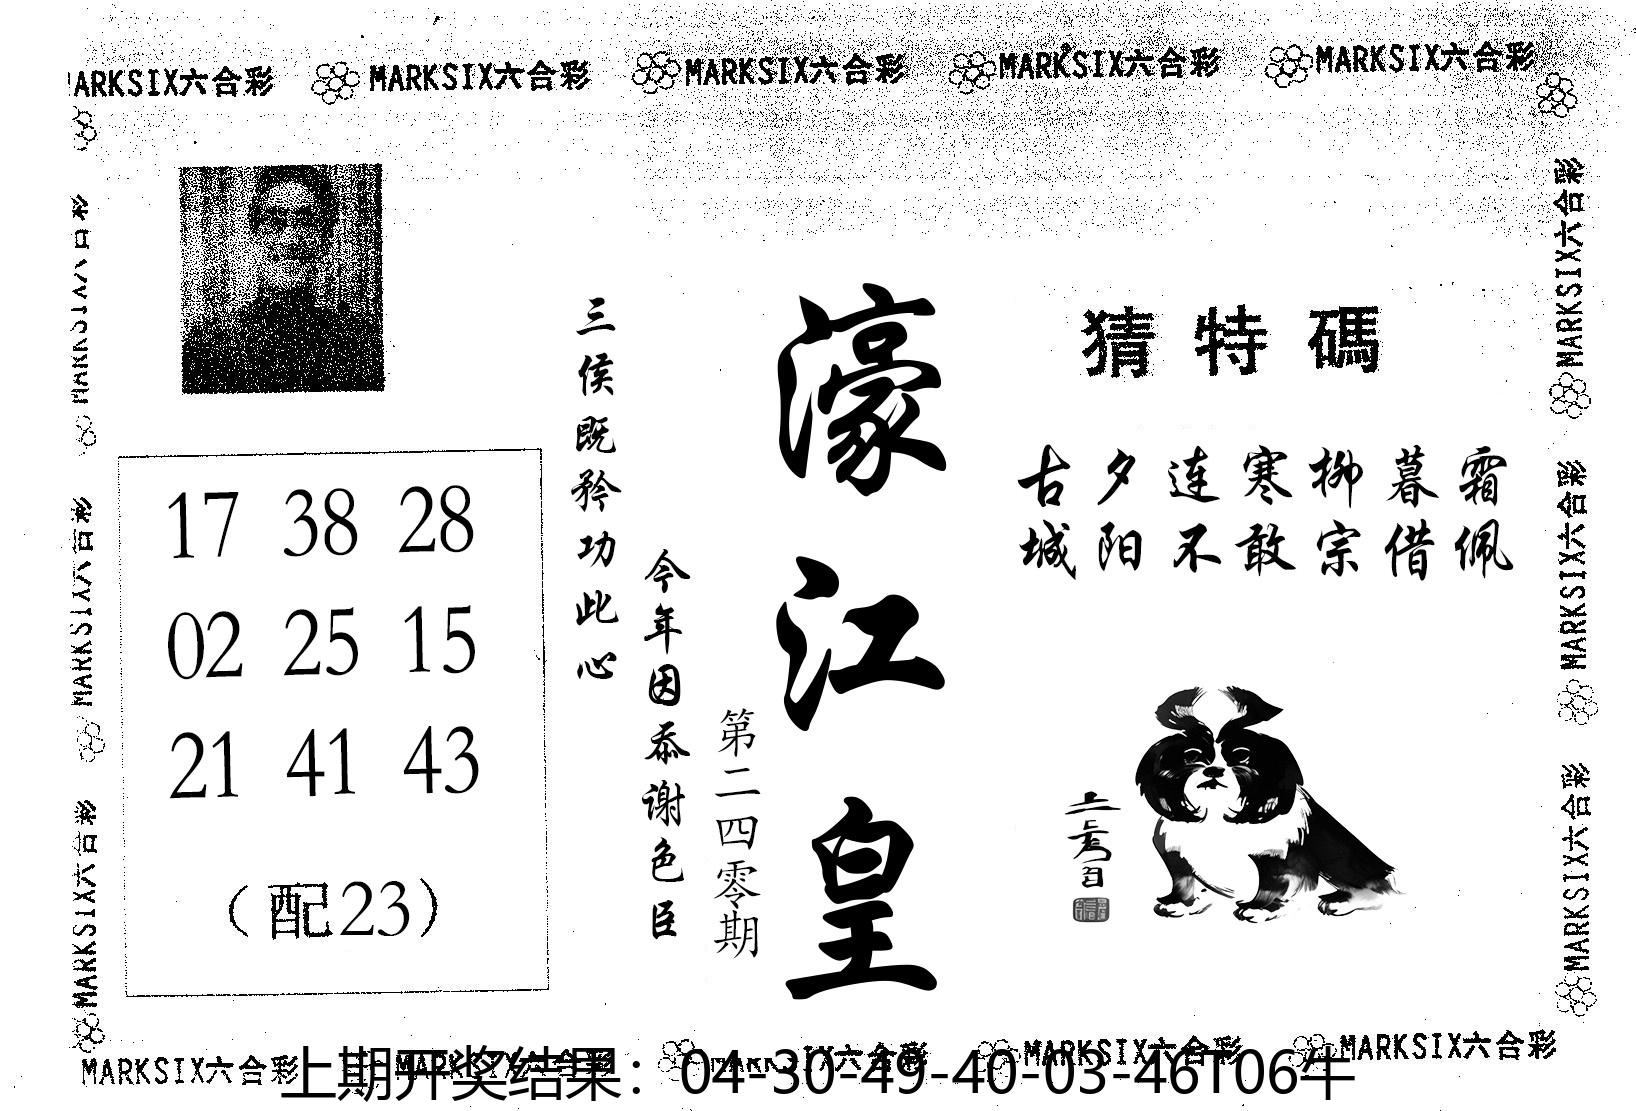 MARKSIX六合彩 MARKSIX六合彩 MARKSIX六合彩 MARKSIX六合彩 MARKSIX六合彩
MARKSIX六合彩
MARKSIX六合彩
MARKSIX六合彩
MARKSIX六合彩
MARKSIX六合彩
MARKSIX六合彩
17 38 28
02 25 15
21 41 43
（配23）
三侯既矜功此心
今年因忝谢色臣
第二四零期
濠江皇
猜特碼
古夕连寒柳暮霜
城阳不敢宗借佩
MARKSIX六合彩 MARKSIX六合彩 MARKSIX六合彩 MARKSIX六合彩 MARKSIX六合彩
上期开奖结果：04-30-49-40-03-46T06牛